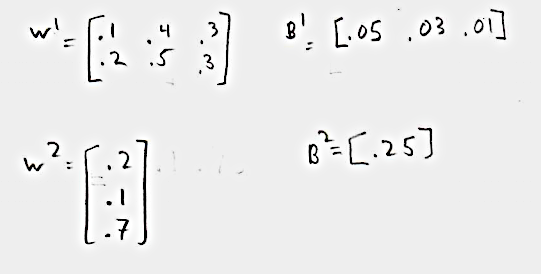 w¹= [.1 .4 .3
.2 .5 .3]
B¹= [.05 .03 .01]
w²= [.2
.1
.7]
B²= [.25]